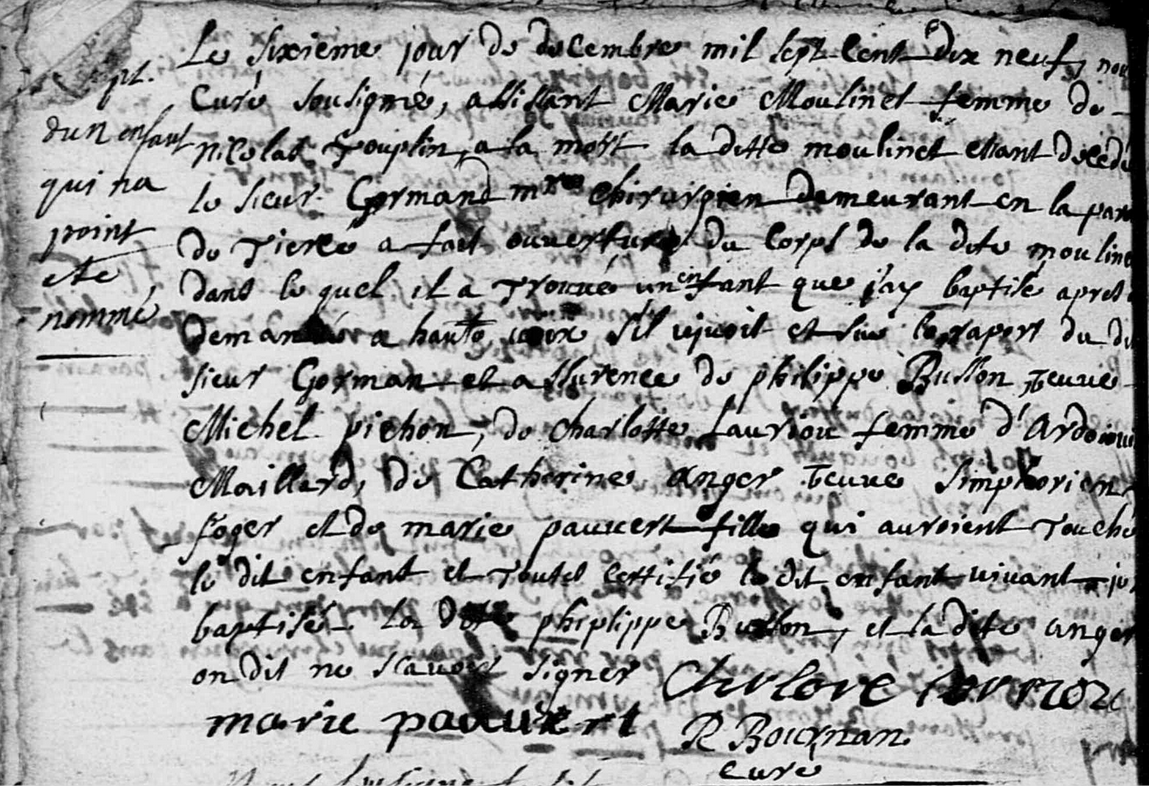 Le sixieme jour de decembre mil sept cent dix neuf, nou
Curé sousigné, assistant Marie Moulinet femme de
nicolas Touplin, a la mort la ditte moulinet estant decedé
le sieur Gormand mre chirurgien demeurant en la paro
de Tiercé a fait ouverture du corps de la dite mouline
dans le quel il a trouué un enfant que j'ay baptisé apres
demandé a haute uoix s'il uiuoit et sur le raport du di
sieur Gorman et assurence de philippe Busson, ueuue
Michel pichon, de charlotte Lauriou femme d'Ardouin
Maillard, de Catherine anger ueuue Simphorien
foger et de marie pauuert fille qui auroient touché
le dit enfant et toutes certifié le dit enfant uiuant
baptisé la dite phiplippe Busson, et la dite anger
on dit ne scauoir signer
marie pauuert
R Bournan
curé
pt.
dun enfant
qui na
point
eté
nommé